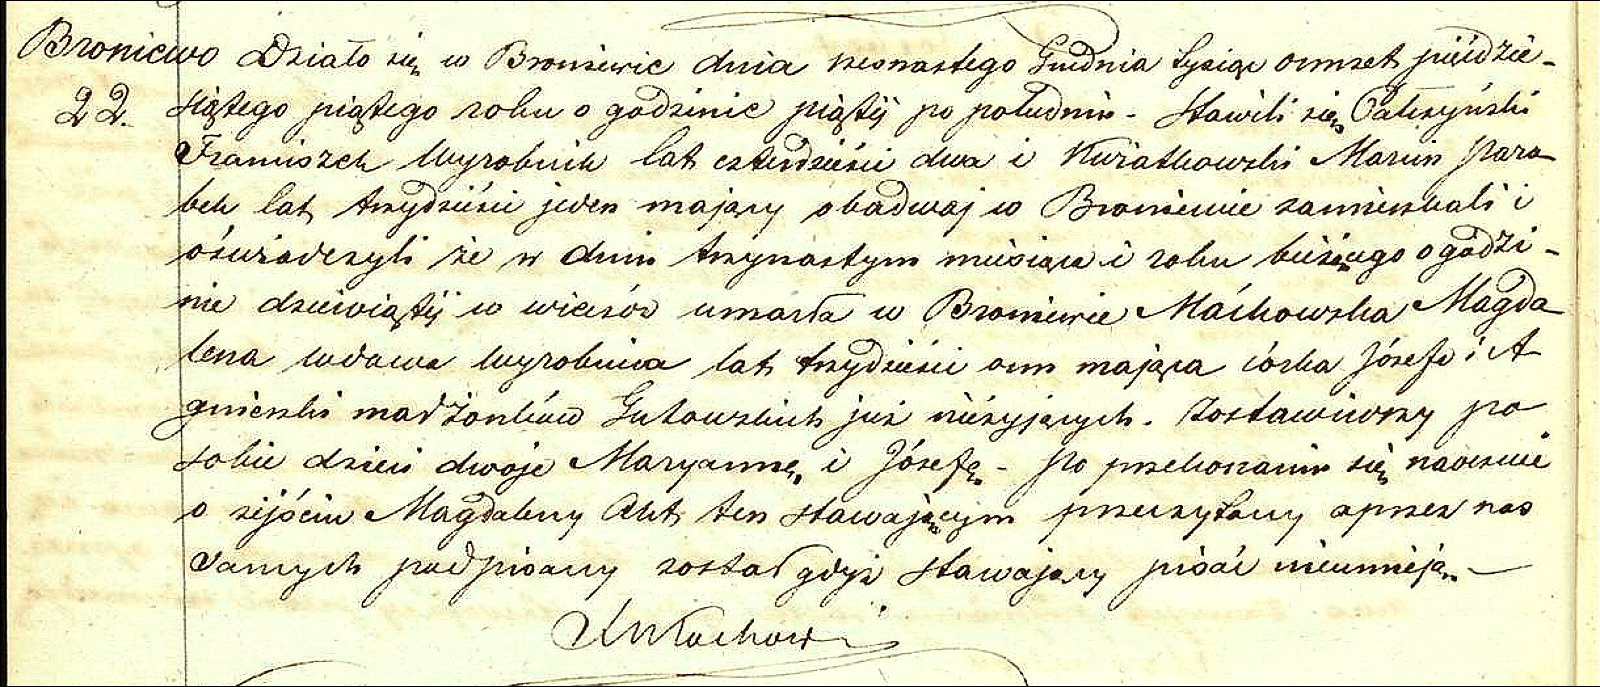 Broniewo Działo się w Broniewie dnia szesnastego Grudnia tysiąc ośmset pięćdzie-
22. siątego piątego roku o godzinie piątéj po południu - Stawili się
Franciszek Wyrobnik lat czterdzieści dwa i Kwiatkowski Marcin Paro
bek lat trzydzieści jeden mający obadwaj w Broniewie zamieszkali i
oświadczyli że w dniu trzynastym miesiąca i roku bieżącego o godzi-
nie dziewiątéj w wieczór umarła w Broniewie Maćkowska Magda
lena wdowa Wyrobnica lat trzydzieści ośm mająca córka Józefa i A
gnieszki małżonków Gutowskich już nieżyjących. Zostawiwszy po
sobie dzieci dwoje Maryannę i Józefę - Po przekonaniu się naocznie
o zejściu Magdaleny Akt ten stawającym przeczytany a przez nas
samych podpisany został gdyż stawający pisać nieumieją. -